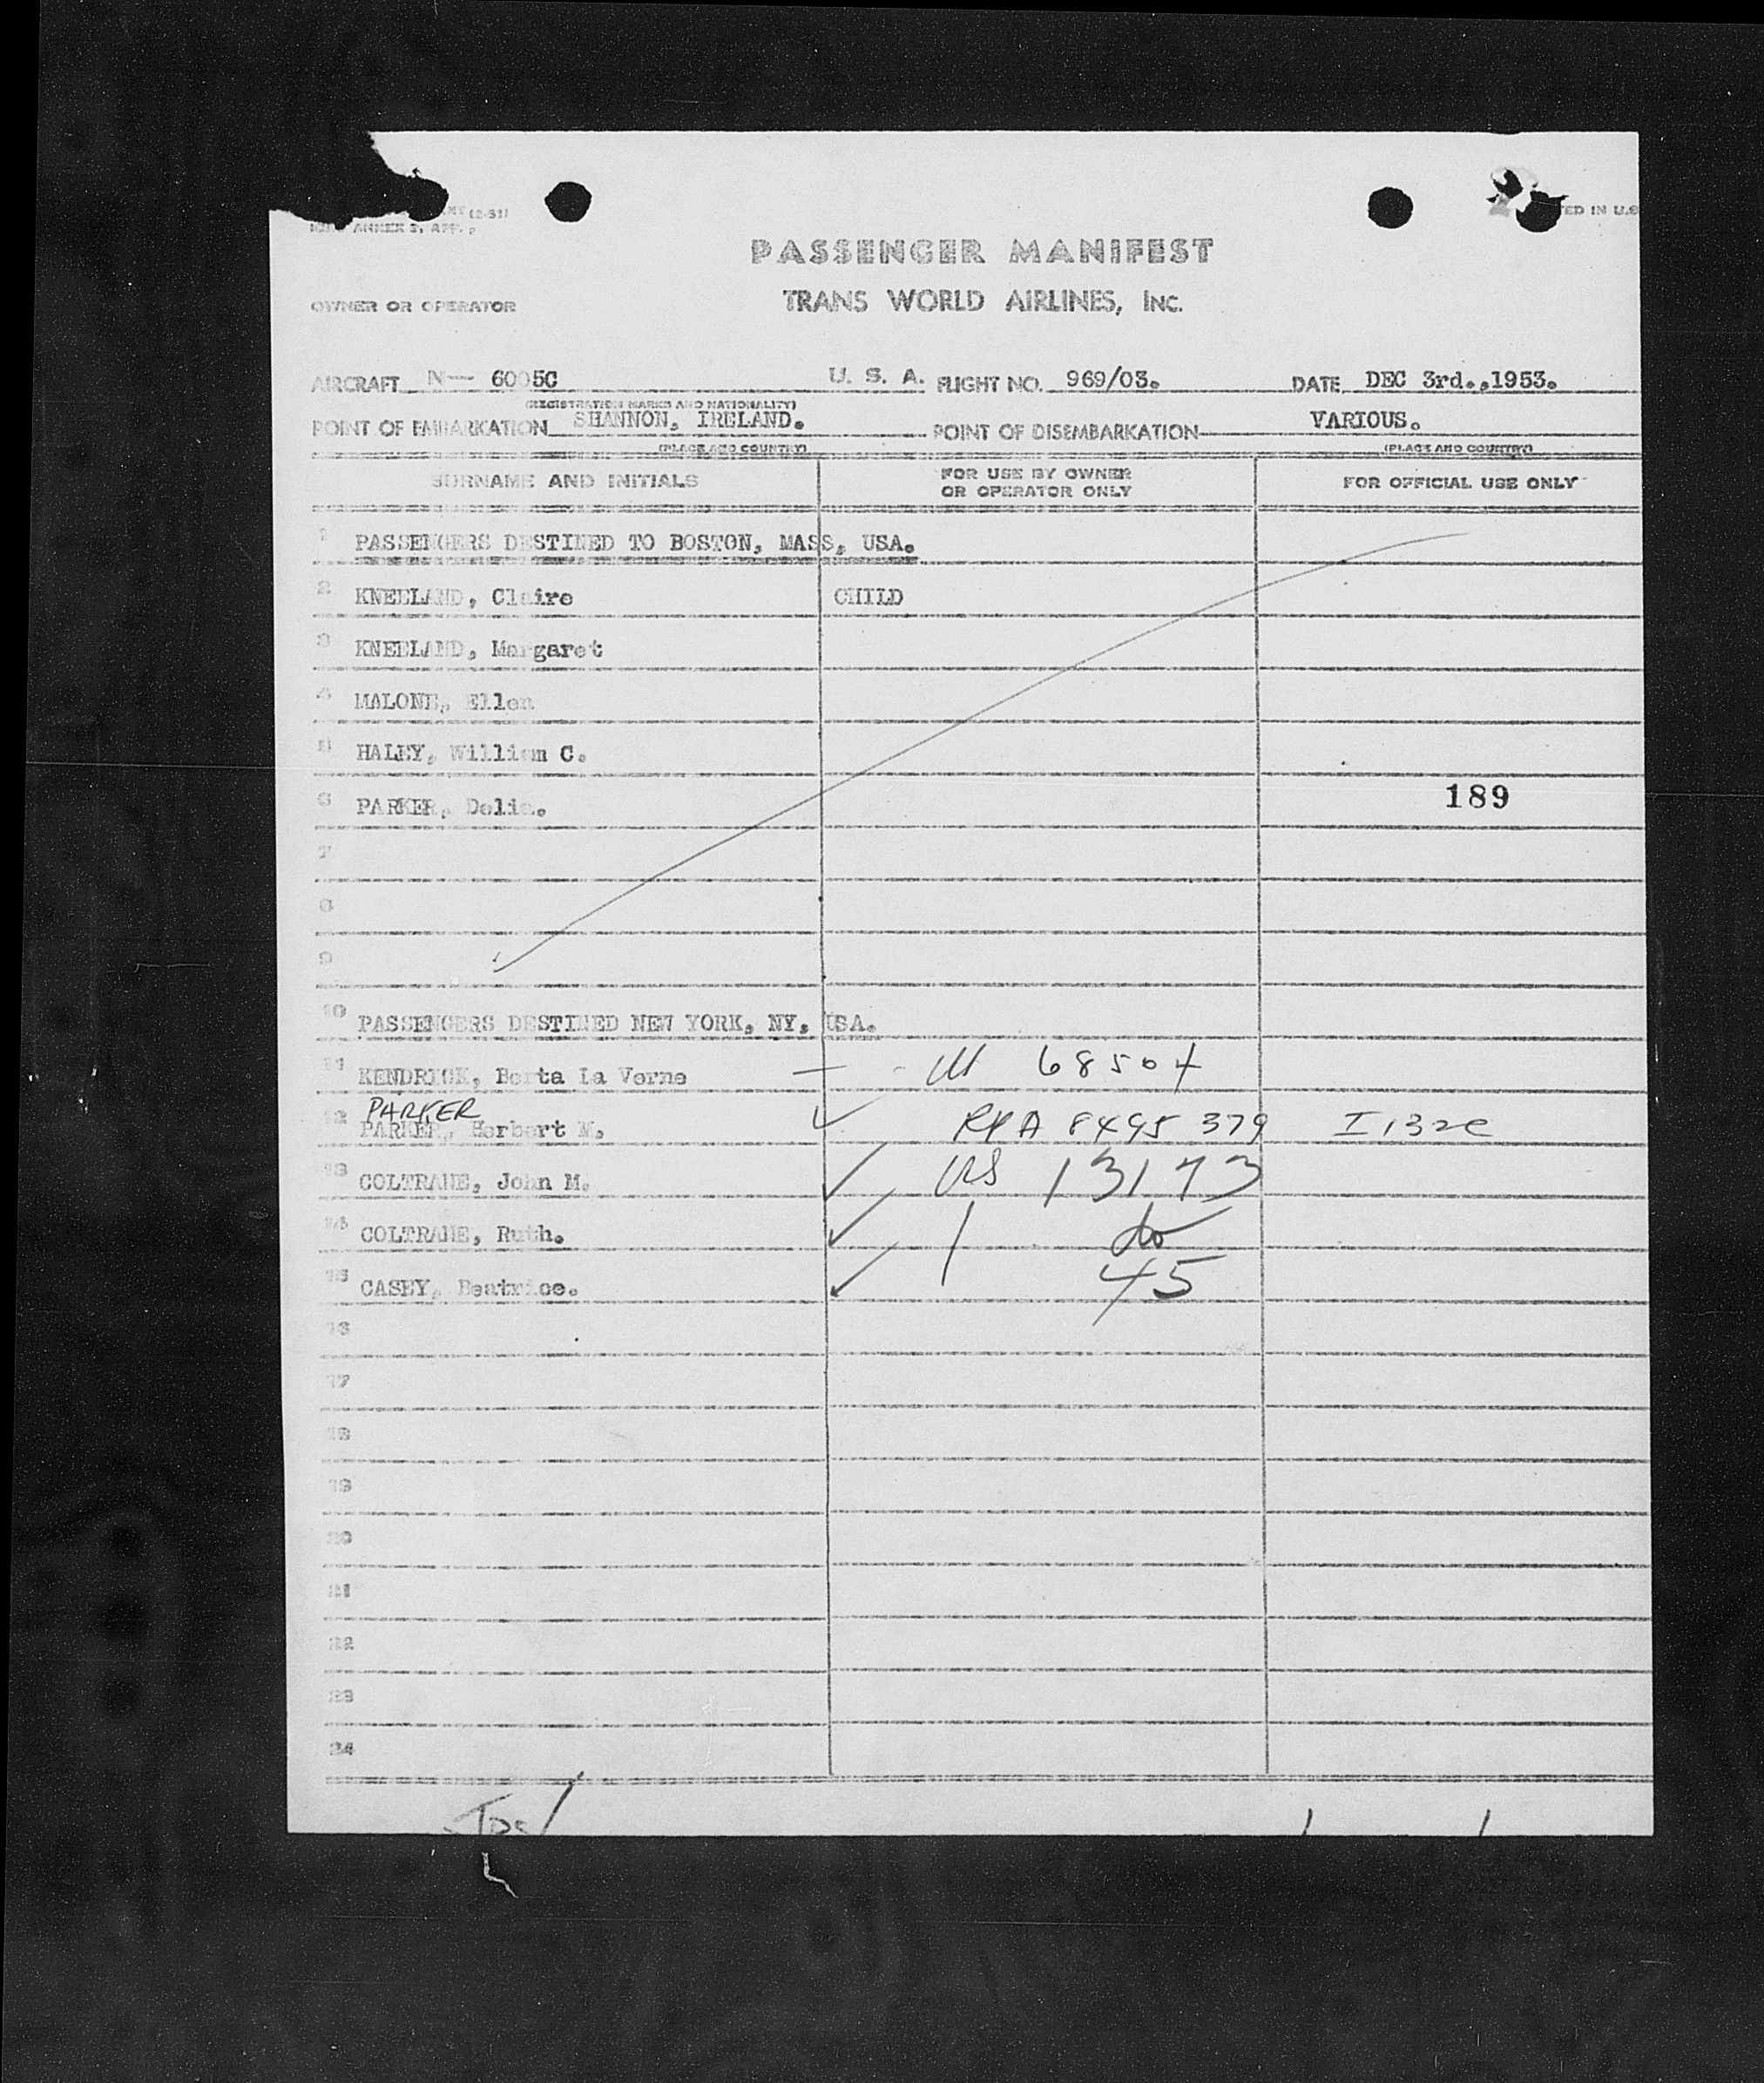 (2-51)
ANNEX 9, APP.
TED IN U.S
PASSENGER MANIFEST
OWNER OR OPERATOR TRANS WORLD AIRLINES, INC.
AIRCRAFT N— 6005C U. S. A. FLIGHT NO. 969/03. DATE DEC 3rd.,1953.
(REGISTRATION MARKS AND NATIONALITY)
POINT OF EMBARKATION SHANNON, IRELAND. POINT OF DISEMBARKATION VARIOUS.
(PLACE AND COUNTRY) (PLACE AND COUNTRY)
SURNAME AND INITIALS FOR USE BY OWNER OR OPERATOR ONLY FOR OFFICIAL USE ONLY
1 PASSENGERS DESTINED TO BOSTON, MASS, USA.
2 KNEELAND, Claire CHILD
3 KNEELAND, Margaret
4 MALONE, Ellen
5 HALEY, William C.
6 PARKER, Delia. 189
7
8
9
10 PASSENGERS DESTINED NEW YORK, NY, USA.
11 KENDRICK, Berta La Verne — 68504
PARKER
12 PARKER, Herbert M. ✓ 8495 379 I 132e
13 COLTRANE, John M. ✓ US 13173
14 COLTRANE, Ruth. ✓ do
15 CASEY, Beatrice. ✓ 45
16
17
18
19
20
21
22
23
24